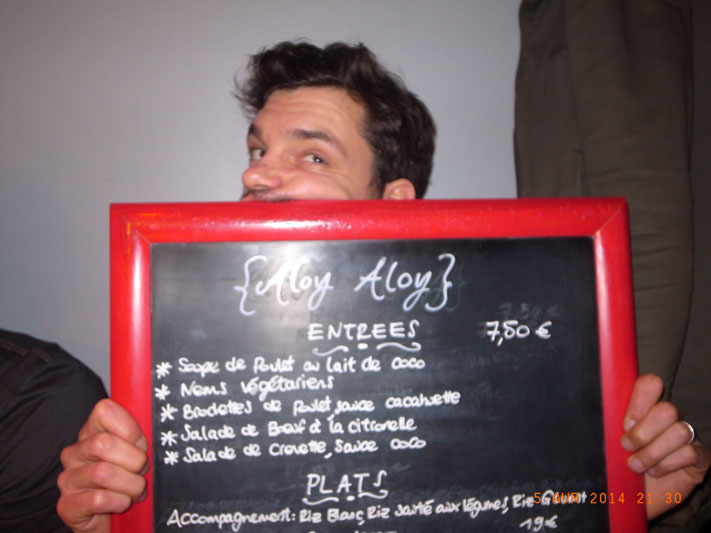 {Aloy Aloy}
ENTREES 7,50 €
* Soupe de Poulet au lait de coco
* Nems végétariens
* Brochettes de Poulet, sauce cacahuette
* Salade de Bœuf à la citronelle
* Salade de Crevette, Sauce coco
PLATS
Accompagnement: Riz Blanc, Riz sauté aux légumes, Riz Gluant
19€
2014 21:30